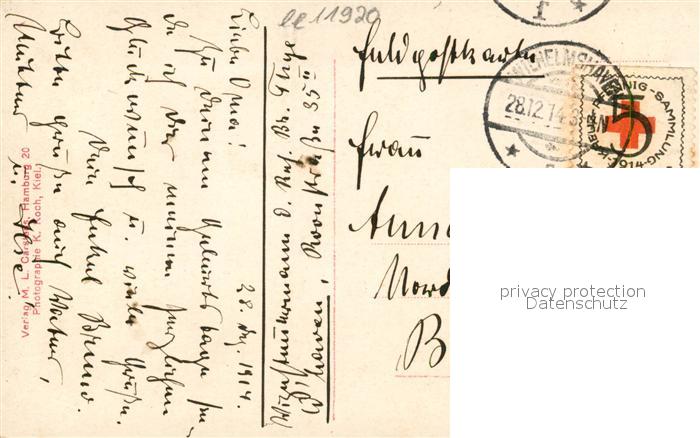 le 11920
Vizesteuermann d. Res. Br.
haven, Roonstraße 35 II
28. Dez. 1914.
Liebe Oma!
Zu Deinem Geburtstage sende
ich Dir meinen herzlichen
Glückwunsch u. viele Grüße.
Dein Enkel Bruno.
Bitte grüße auch Vater,
Mutter u.
Verlag M. L. Carstens, Hamburg 20
Photographie K. Koch, Kiel.
Feldpostkarte
WILHELMSHAVEN
28.12.14.
5
SAMMLUNG
1914
Frau
Anna
Nord
B
privacy protection
Datenschutz